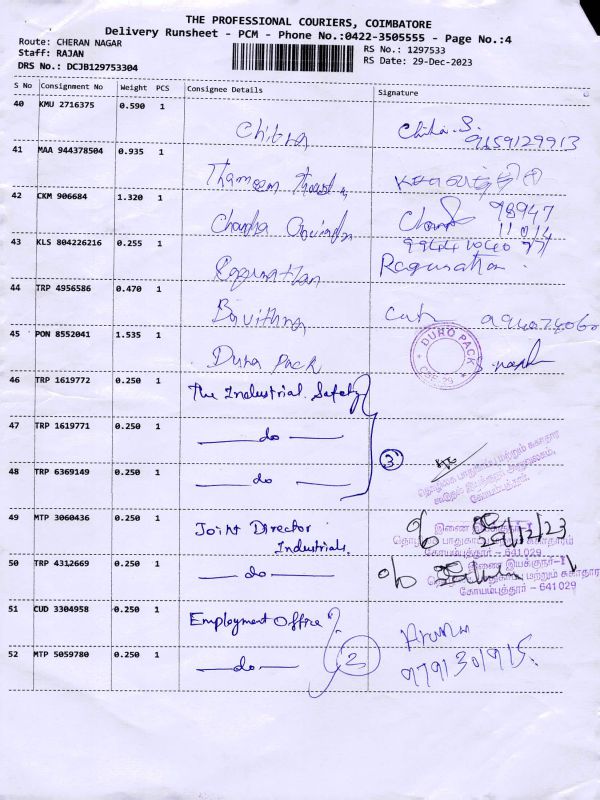 THE PROFESSIONAL COURIERS, COIMBATORE
Delivery Runsheet - PCM - Phone No.:0422-3505555 - Page No.:4
Route: CHERAN NAGAR
RS No.: 1297533
Staff: RAJAN
RS Date: 29-Dec-2023
DRS No.: DCJB129753304
S No Consignment No Weight PCS Consignee Details Signature
40 KMU 2716375 0.590 1
Chitra Chitra S.
9159129913
41 MAA 944378504 0.935 1
Thameem
42 CKM 906684 1.320 1
Chandra Govindan 98947
11014
43 KLS 804226216 0.255 1
Ragunathan Ragunathan
44 TRP 4956586 0.470 1
Bavithra
45 PON 8552041 1.535 1
Dura Pack
DURO PACK
CBE-29
46 TRP 1619772 0.250 1
The Industrial Safety
47 TRP 1619771 0.250 1
do
3
48 TRP 6369149 0.250 1
do
கோயம்புத்தூர்.
49 MTP 3060436 0.250 1
Joint Director
Industrials.
29/12/23
கோயம்புத்தூர் - 641 029
50 TRP 4312669 0.250 1
do
கோயம்புத்தூர் - 641 029
51 CUD 3304958 0.250 1
Employment Office
Aruna
52 MTP 5059780 0.250 1
do
2
9791301915